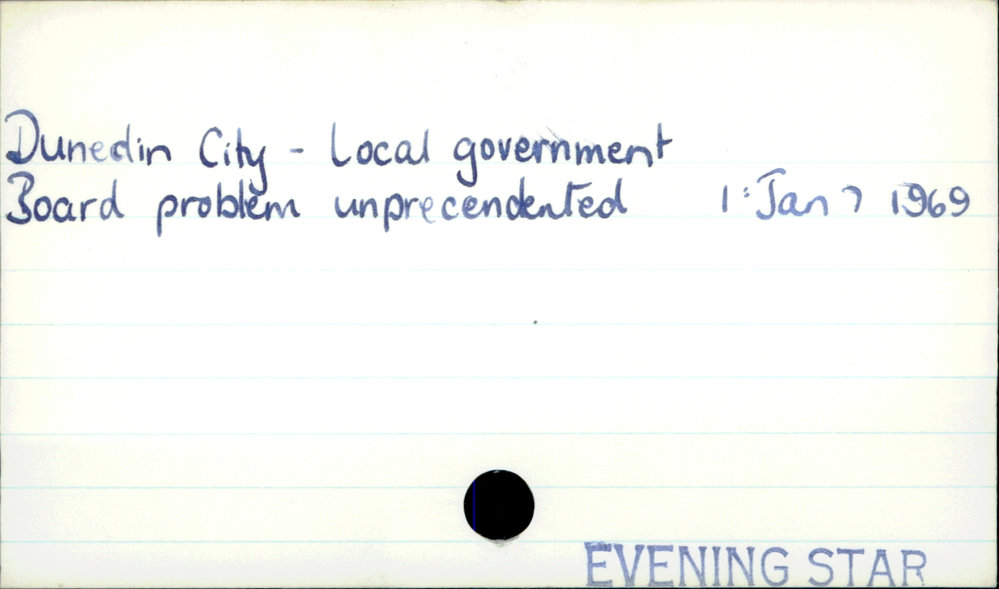 Dunedin City - Local government
Board problem unprecendented 1: Jan 7 1969
EVENING STAR